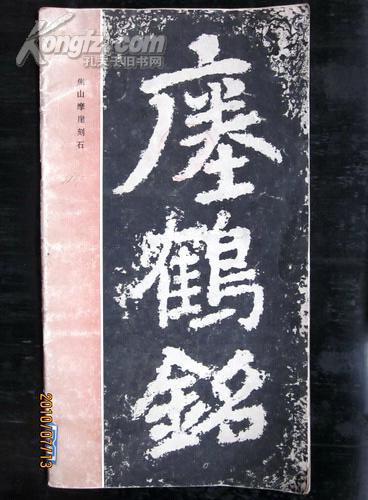 Kongfz.com
孔夫子旧书网
焦山摩崖刻石
瘞鶴銘
2010/07/13